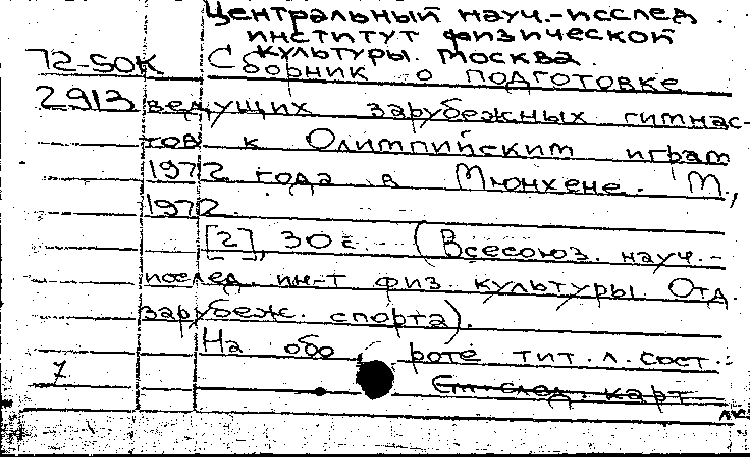 Центральный науч.-исслед.
институт физической
культуры. Москва.
72-50К Сборник о подготовке
2913 ведущих зарубежных гимнас-
тов к Олимпийским играм
1972 года в Мюнхене. М.,
1972.
[2], 30 с. (Всесоюз. науч.-
исслед. ин-т физ. культуры. Отд.
зарубеж. спорта).
На обороте тит. л. сост.:
7 См. след. карт